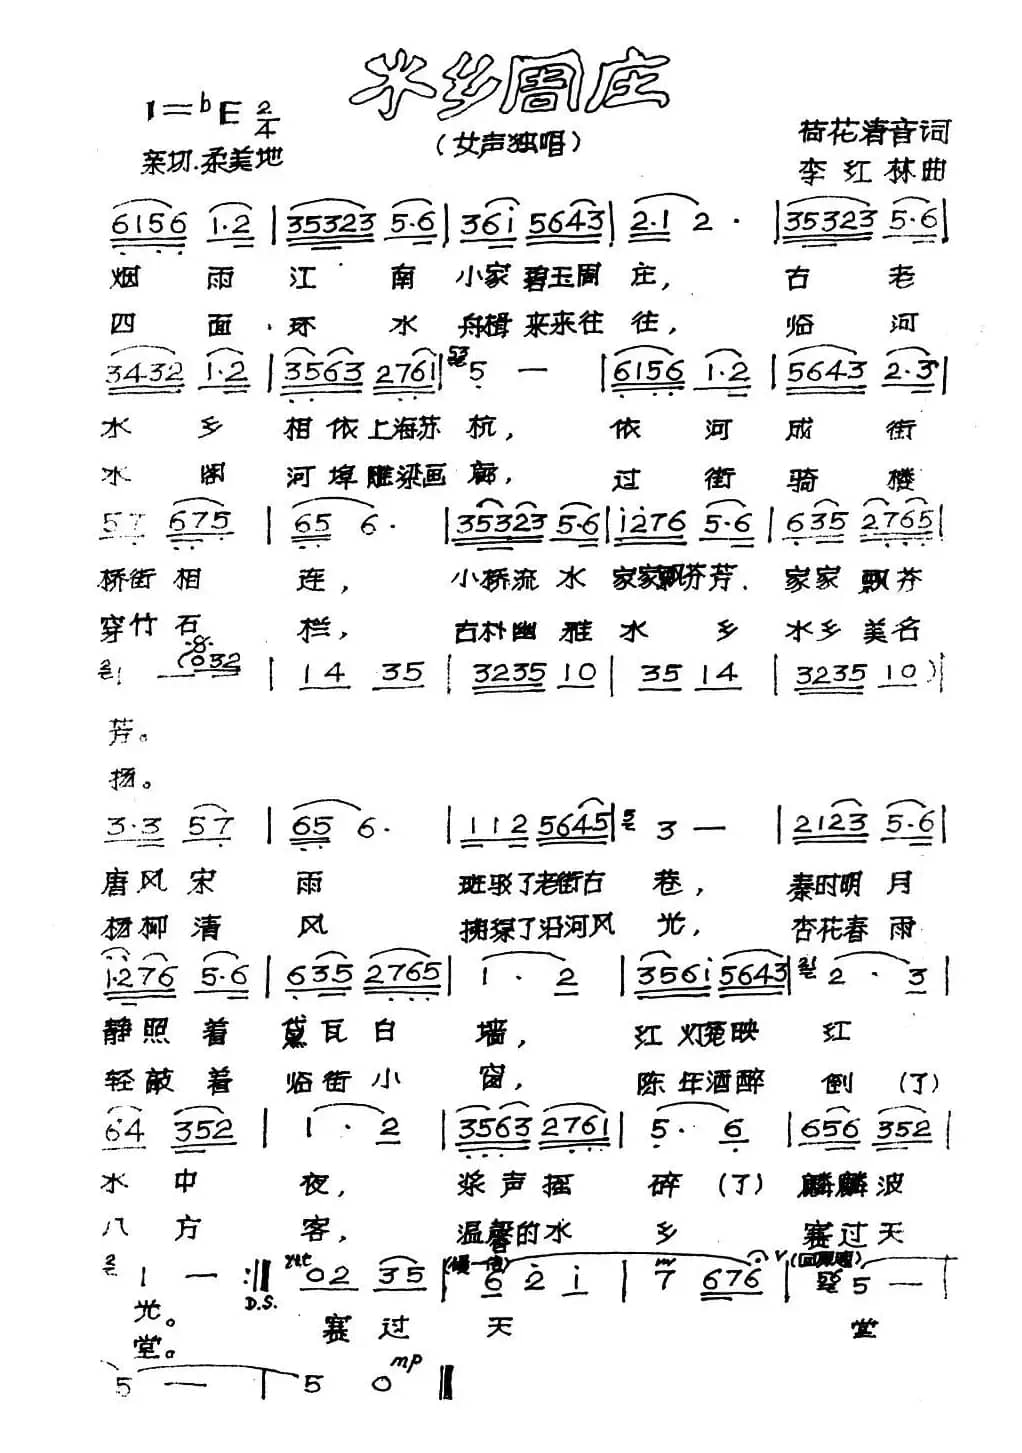 水乡周庄
1=bE 2/4
（女声独唱）
荷花清音词
亲切.柔美地
李红林曲
6156 1·2 | 35323 5·6 | 36i 5643 | 2·1 2· | 35323 5·6 |
烟 雨 江 南 小家 碧玉周 庄， 古 老
四 面 环 水 舟楫 来来往 往， 临 河
3432 1·2 | 3563 2761 | 5 — | 6156 1·2 | 5643 2·3 |
水 乡 相 依上海苏 杭， 依 河 成 街
水 阁 河 埠雕梁画 廊， 过 街 骑 楼
57 675 | 65 6· | 35323 5·6 | i276 5·6 | 635 2765 |
桥街 相 连， 小桥流 水 家家飘芬芳. 家家 飘芬
穿竹 石 栏， 古朴幽 雅 水 乡 水乡 美名
1 (032 | 14 35 | 3235 10 | 35 14 | 3235 10) |
芳。
扬。
3·3 57 | 65 6· | 112 5645 | 3 — | 2123 5·6 |
唐风 宋 雨 斑驳了老街古 巷， 秦时明 月
杨柳 清 风 拥绿了沿河风 光， 杏花春 雨
1·276 5·6 | 635 2765 | 1· 2 | 356i 5643 | 2· 3 |
静照 着 黛瓦白 墙， 红 灯笼映 红
轻敲 着 临街小 窗， 陈年酒醉 倒（了）
64 352 | 1· 2 | 3563 2761 | 5· 6 | 656 352 |
水 中 夜， 浆声摇 碎（了）麟麟波
八 方 客， 温馨的水 乡 赛过天
1 — :‖ 02 35 | 6 2 i | 7 676 | 5 — |
D.S.
光。 赛 过 天 堂
堂。
5 — | 5 0 ‖
mp